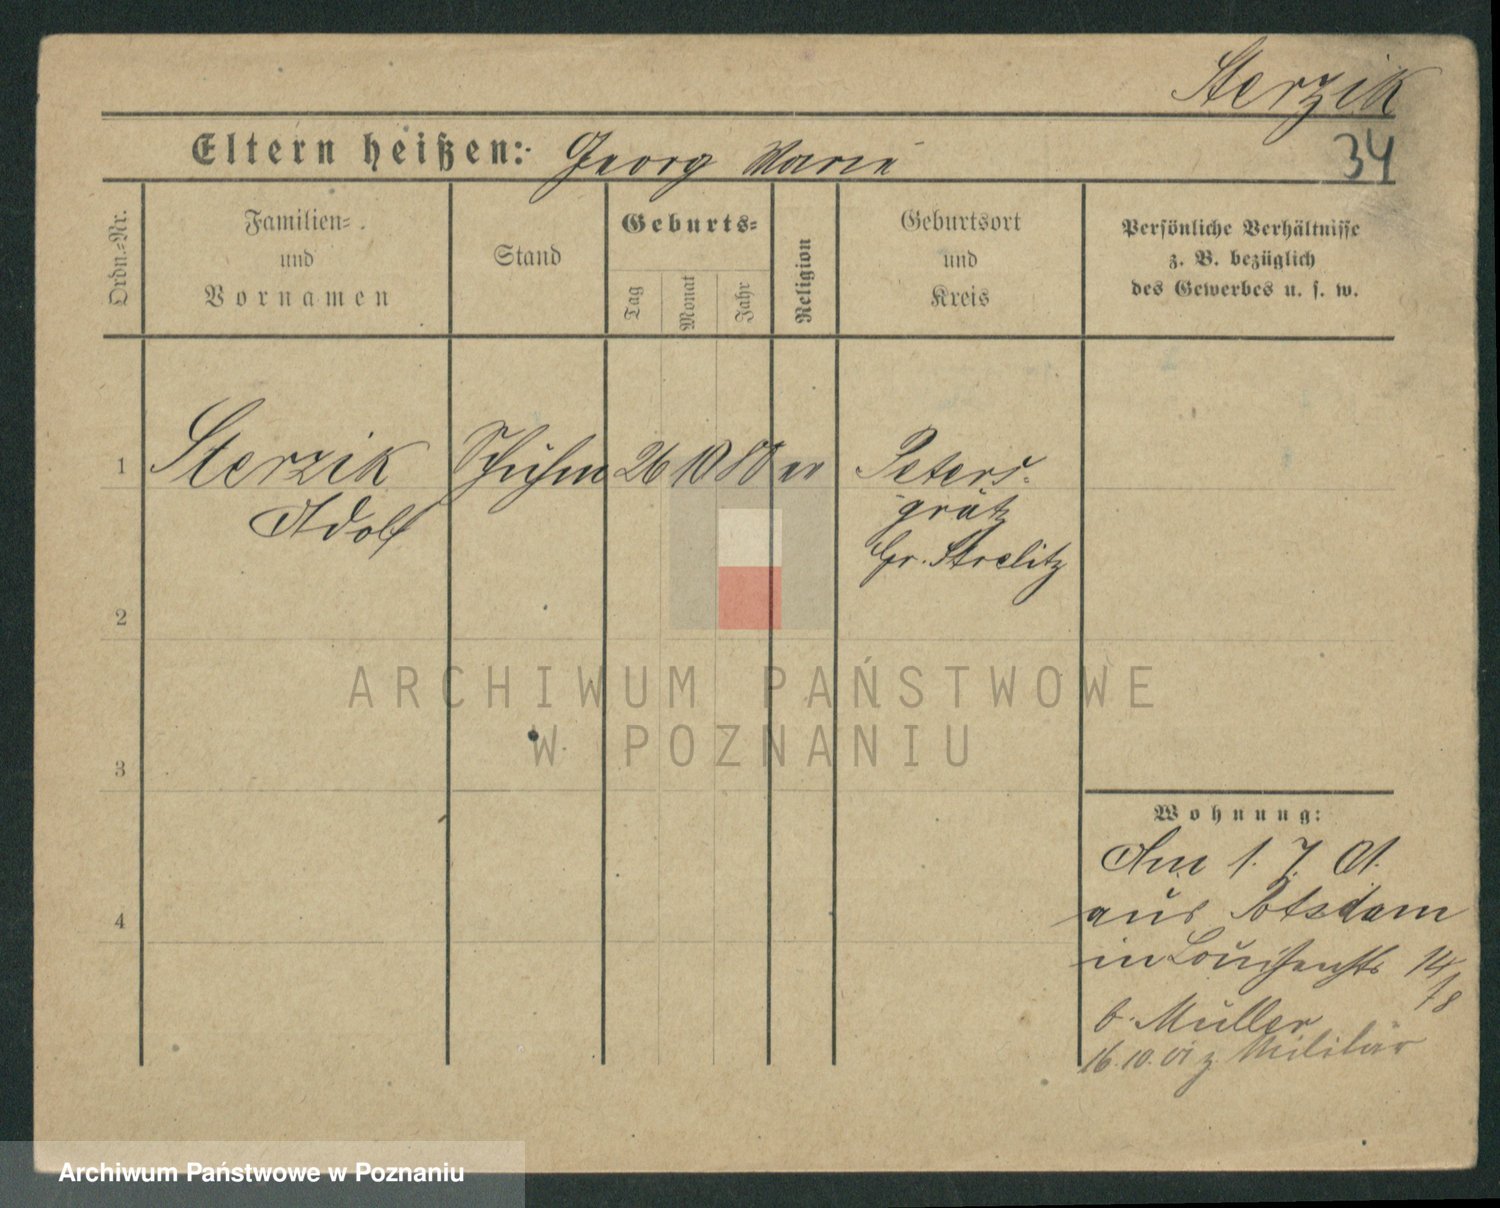 Sterzik
34
Eltern heißen: Georg Marie
Ordn.-Nr.
Familien-
und
Vornamen
Stand
Geburts-
Tag
Monat
Jahr
Religion
Geburtsort
und
Kreis
Persönliche Verhältnisse
z. B. bezüglich
des Gewerbes u. s. w.
1 Sterzik Schuhm 26 10 80 ev Peters-
Adolf grätz
Gr. Strelitz
2
3
4
ARCHIWUM PAŃSTWOWE
W POZNANIU
Wohnung:
Am 1. 7. 01.
aus Potsdam
in Louisenstr 14/18
b. Müller
16. 10. 01 z. Militär
Archiwum Państwowe w Poznaniu